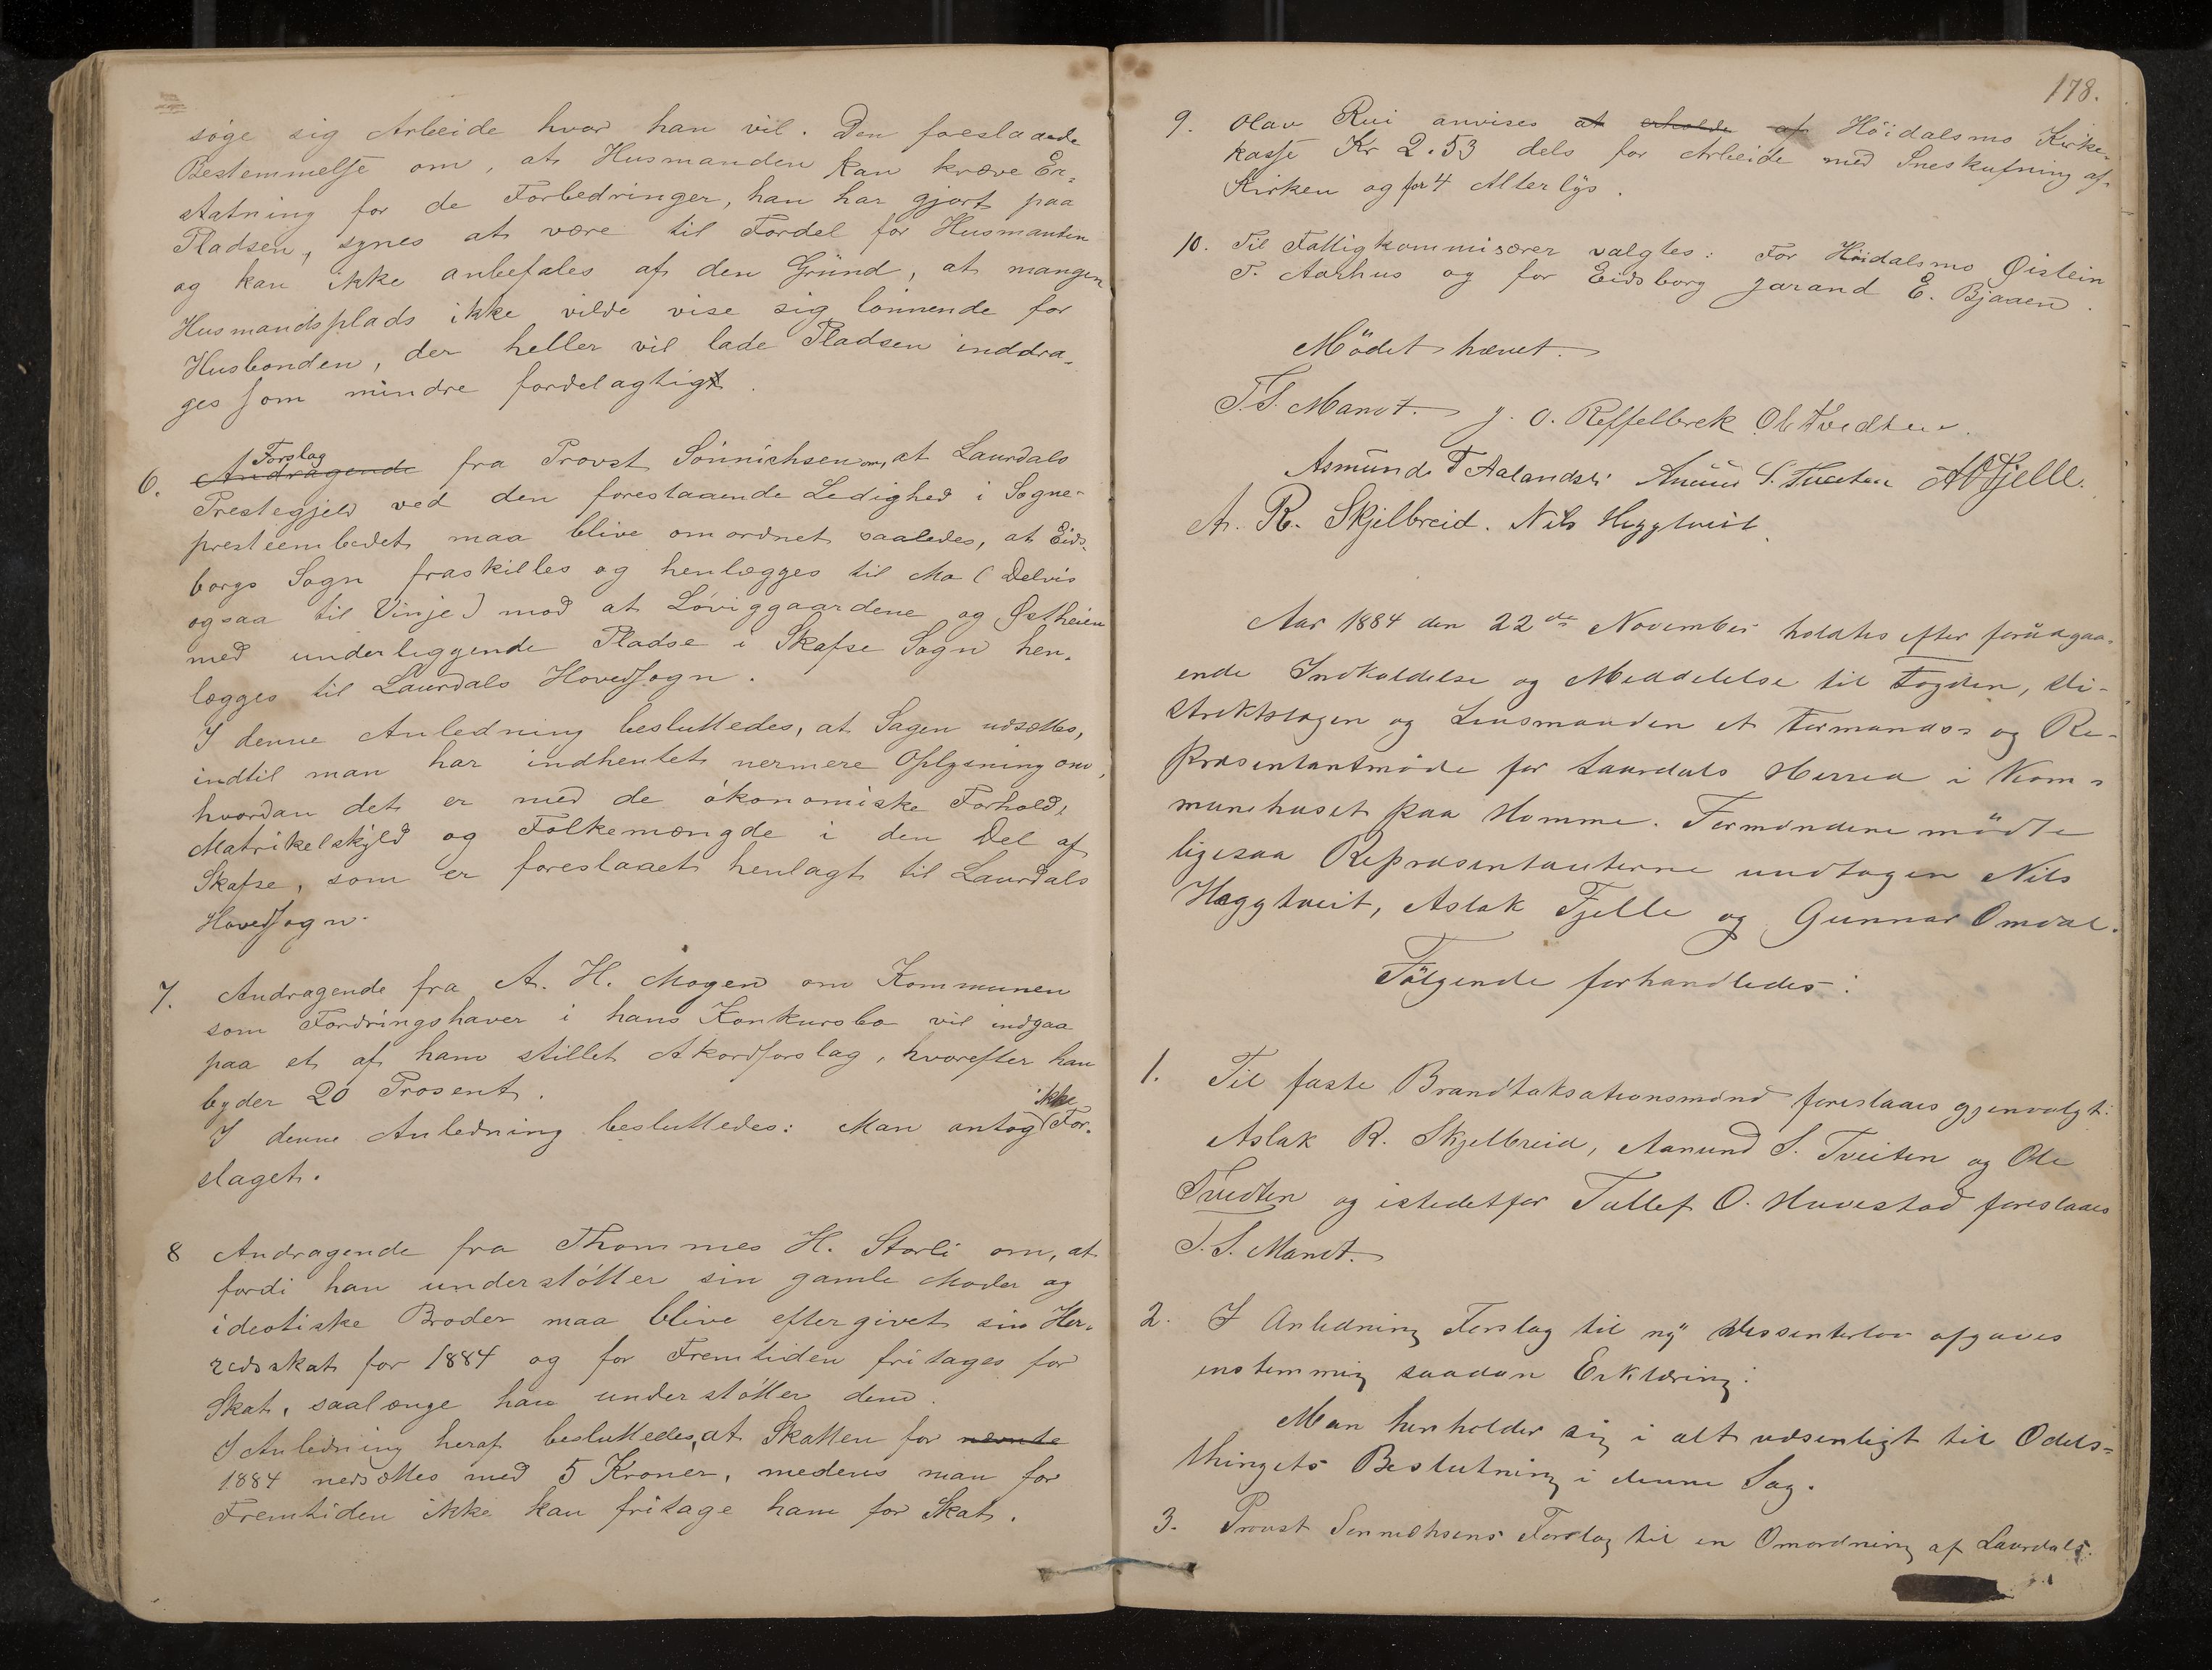 søge sig Arbeide hvor han vil. Den foreslaaede
Bestemmelse om, at Husmanden kan kræve Er-
statning for de Forbedringer, han har gjort paa
Pladsen, synes at være til Fordel for Husmanden
og kan ikke anbefales af den Grund, at mangen
Husmandsplads ikke vilde vise sig lønnende for
Husbonden, der heller vil lade Pladsen inddra-
ges som mindre fordelagtigt.
6. Andragende Forslag fra Provst Sönnichsen om, at Laurdals
Prestegjeld ved den forestaaende Ledighed i Sogne-
presteembedet maa blive omordnet saaledes, at Eids-
borgs Sogn fraskilles og henlægges til Mo (Delvis
ogsaa til Vinje) mod at Löviggaardene og Østheien
med underliggende Pladse i Skafse Sogn hen-
lægges til Laurdals Hovedsogn.
I denne Anledning besluttedes, at Sagen udsættes,
indtil man har indhentet nermere Oplysning om,
hvordan det er med de økonomiske Forhold,
Matrikelskyld og Folkemængde i den Del af
Skafse, som er foreslaaet henlagt til Laurdals
Hovedsogn.
7. Andragende fra A. H. Mogen om Kommunen
som Fordringshaver i hans Konkursbo vil indgaa
paa et af ham stillet Akordforslag, hvorefter han
byder 20 Prosent.
I denne Anledning besluttedes: Man antog ikke For-
slaget.
8 Andragende fra Thommes H. Storli om, at
fordi han understøtter sin gamle Moder og
ideotiske Broder maa blive eftergivet sin Her-
redsskat for 1884 og for Fremtiden fritages for
Skat, saalænge han understøtter dem.
I Anledning heraf besluttedes, at Skatten for nevnte
1884 nedsættes med 5 Kroner, medens man for
Fremtiden ikke kan fritage ham for Skat.
178.
9. Olav Rui anvises at erholde af Höidalsmo Kirke-
kasse Kr 2.53 dels for Arbeide med Sneskufning af
Kirken og for 4 Alterlys.
10. Til Fattigkommisærer valgtes: For Höidalsmo Øistein
T. Aarhus og for Eidsborg Jarand E. Bjaaen.
Mödet hævet.
T. S. Mandt. J. O. Reffelbrek Ole Tvedten.
Asmund T Aalandsli Anund S. Tveiten AOFjelle.
A. R. Skjelbreid. Nils Heggtveit
Aar 1884 den 22de November holdtes efter forudgaa-
ende Indkaldelse og Meddelelse til Fogden, Di-
striktslægen og Lensmanden et Formands- og Re-
præsentantmøde for Laurdals Herred i Kom-
munehuset paa Homme. Formændene mödte
ligesaa Repræsentanterne undtagen Nils
Heggtveit, Aslak Fjelle og Gunnar Omdal.
Følgende forhandledes:
1. Til faste Brandtaksationsmænd foreslaaes gjenvalgt:
Aslak R. Skjelbreid, Aanund S. Tveiten og Ole
Tvedten og istedetfor Tallef O. Huvestad foreslaaes
T. S. Mandt.
2. I Anledning Forslag til ny Dissenterlov afgaves
enstemmig saadan Erklæring:
Man henholder sig i alt væsenligt til Odels-
thingets Beslutning i denne Sag.
3. Provst Sønnichsens Forslag til en Omordning af Laurdals